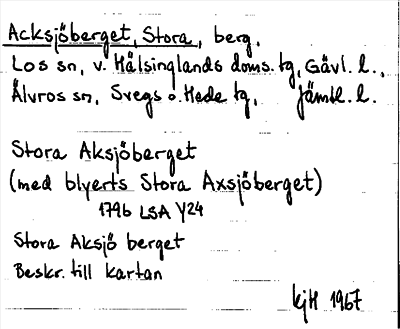 Acksjöberget, Stora, berg.
Los sn, v. Hälsinglands doms. tg, Gävl. l.,
Älvros sn, Svegs o. Hede tg, Jämtl. l.
Stora Aksjöberget
(med blyerts Stora Axsjöberget)
1796 LSA Y24
Stora Aksjö berget
Beskr. till kartan
kjH 1967